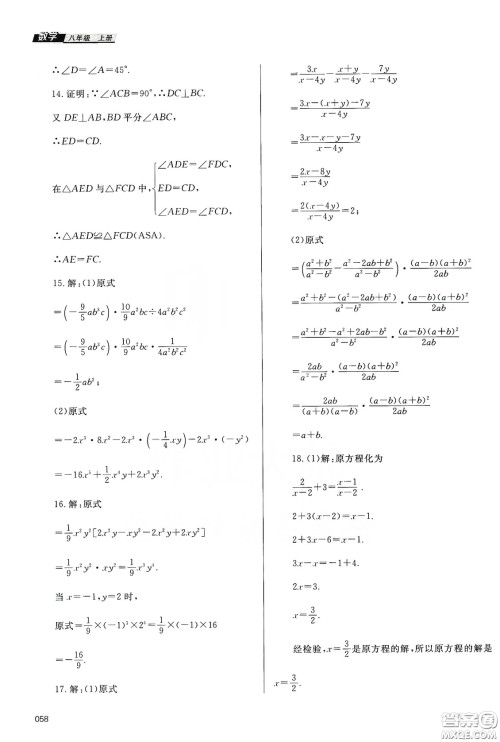 数学 八年级 上册
∴∠D=∠A=45°.
14.证明:∵∠ACB=90°,∴DC⊥BC.
又 DE⊥AB,BD平分∠ABC,
∴ED=CD.
在△AED与△FCD中,{∠ADE=∠FDC, ED=CD, ∠AED=∠FCD,
∴△AED≌△FCD(ASA).
∴AE=FC.
15.解:(1)原式
=(-9/5 ab³c)·10/9 a²bc÷4a²b²c²
=(-9/5 ab³c)·10/9 a²bc·1/(4a²b²c²)
=-1/2 ab²;
(2)原式
=-2x³·8x²-2x³·(-1/4 xy)-2x³·(-y²)
=-16x⁵+1/2 x⁴y+2x³y².
16.解:原式
=1/9 x²y²[2x²y-xy²-2x²y+2xy²]
=1/9 x²y²·xy²=1/9 x³y⁴.
当 x=-1,y=2时,
原式=1/9×(-1)³×2⁴=1/9×(-1)×16
=-16/9.
17.解:(1)原式
=3x/(x-4y)-(x+y)/(x-4y)-7y/(x-4y)
=(3x-(x+y)-7y)/(x-4y)
=(3x-x-y-7y)/(x-4y)
=(2x-8y)/(x-4y)
=2(x-4y)/(x-4y)=2;
(2)原式
=((a²+b²)/(a²-b²)-(a²-2ab+b²)/(a²-b²))·(a-b)(a-b)²/2ab
=(a²+b²-a²+2ab-b²)/(a²-b²)·(a-b)(a-b)²/2ab
=2ab/(a²-b²)·(a-b)(a-b)²/2ab
=2ab/((a+b)(a-b))·(a-b)(a-b)²/2ab
=a+b.
18.(1)解:原方程化为
2/(x-2)+3=(x-1)/(x-2).
2+3(x-2)=x-1.
2+3x-6=x-1.
3x-x=-2+6-1
2x=3.
x=3/2.
经检验,x=3/2是原方程的解,所以原方程的解
是x=3/2.
058